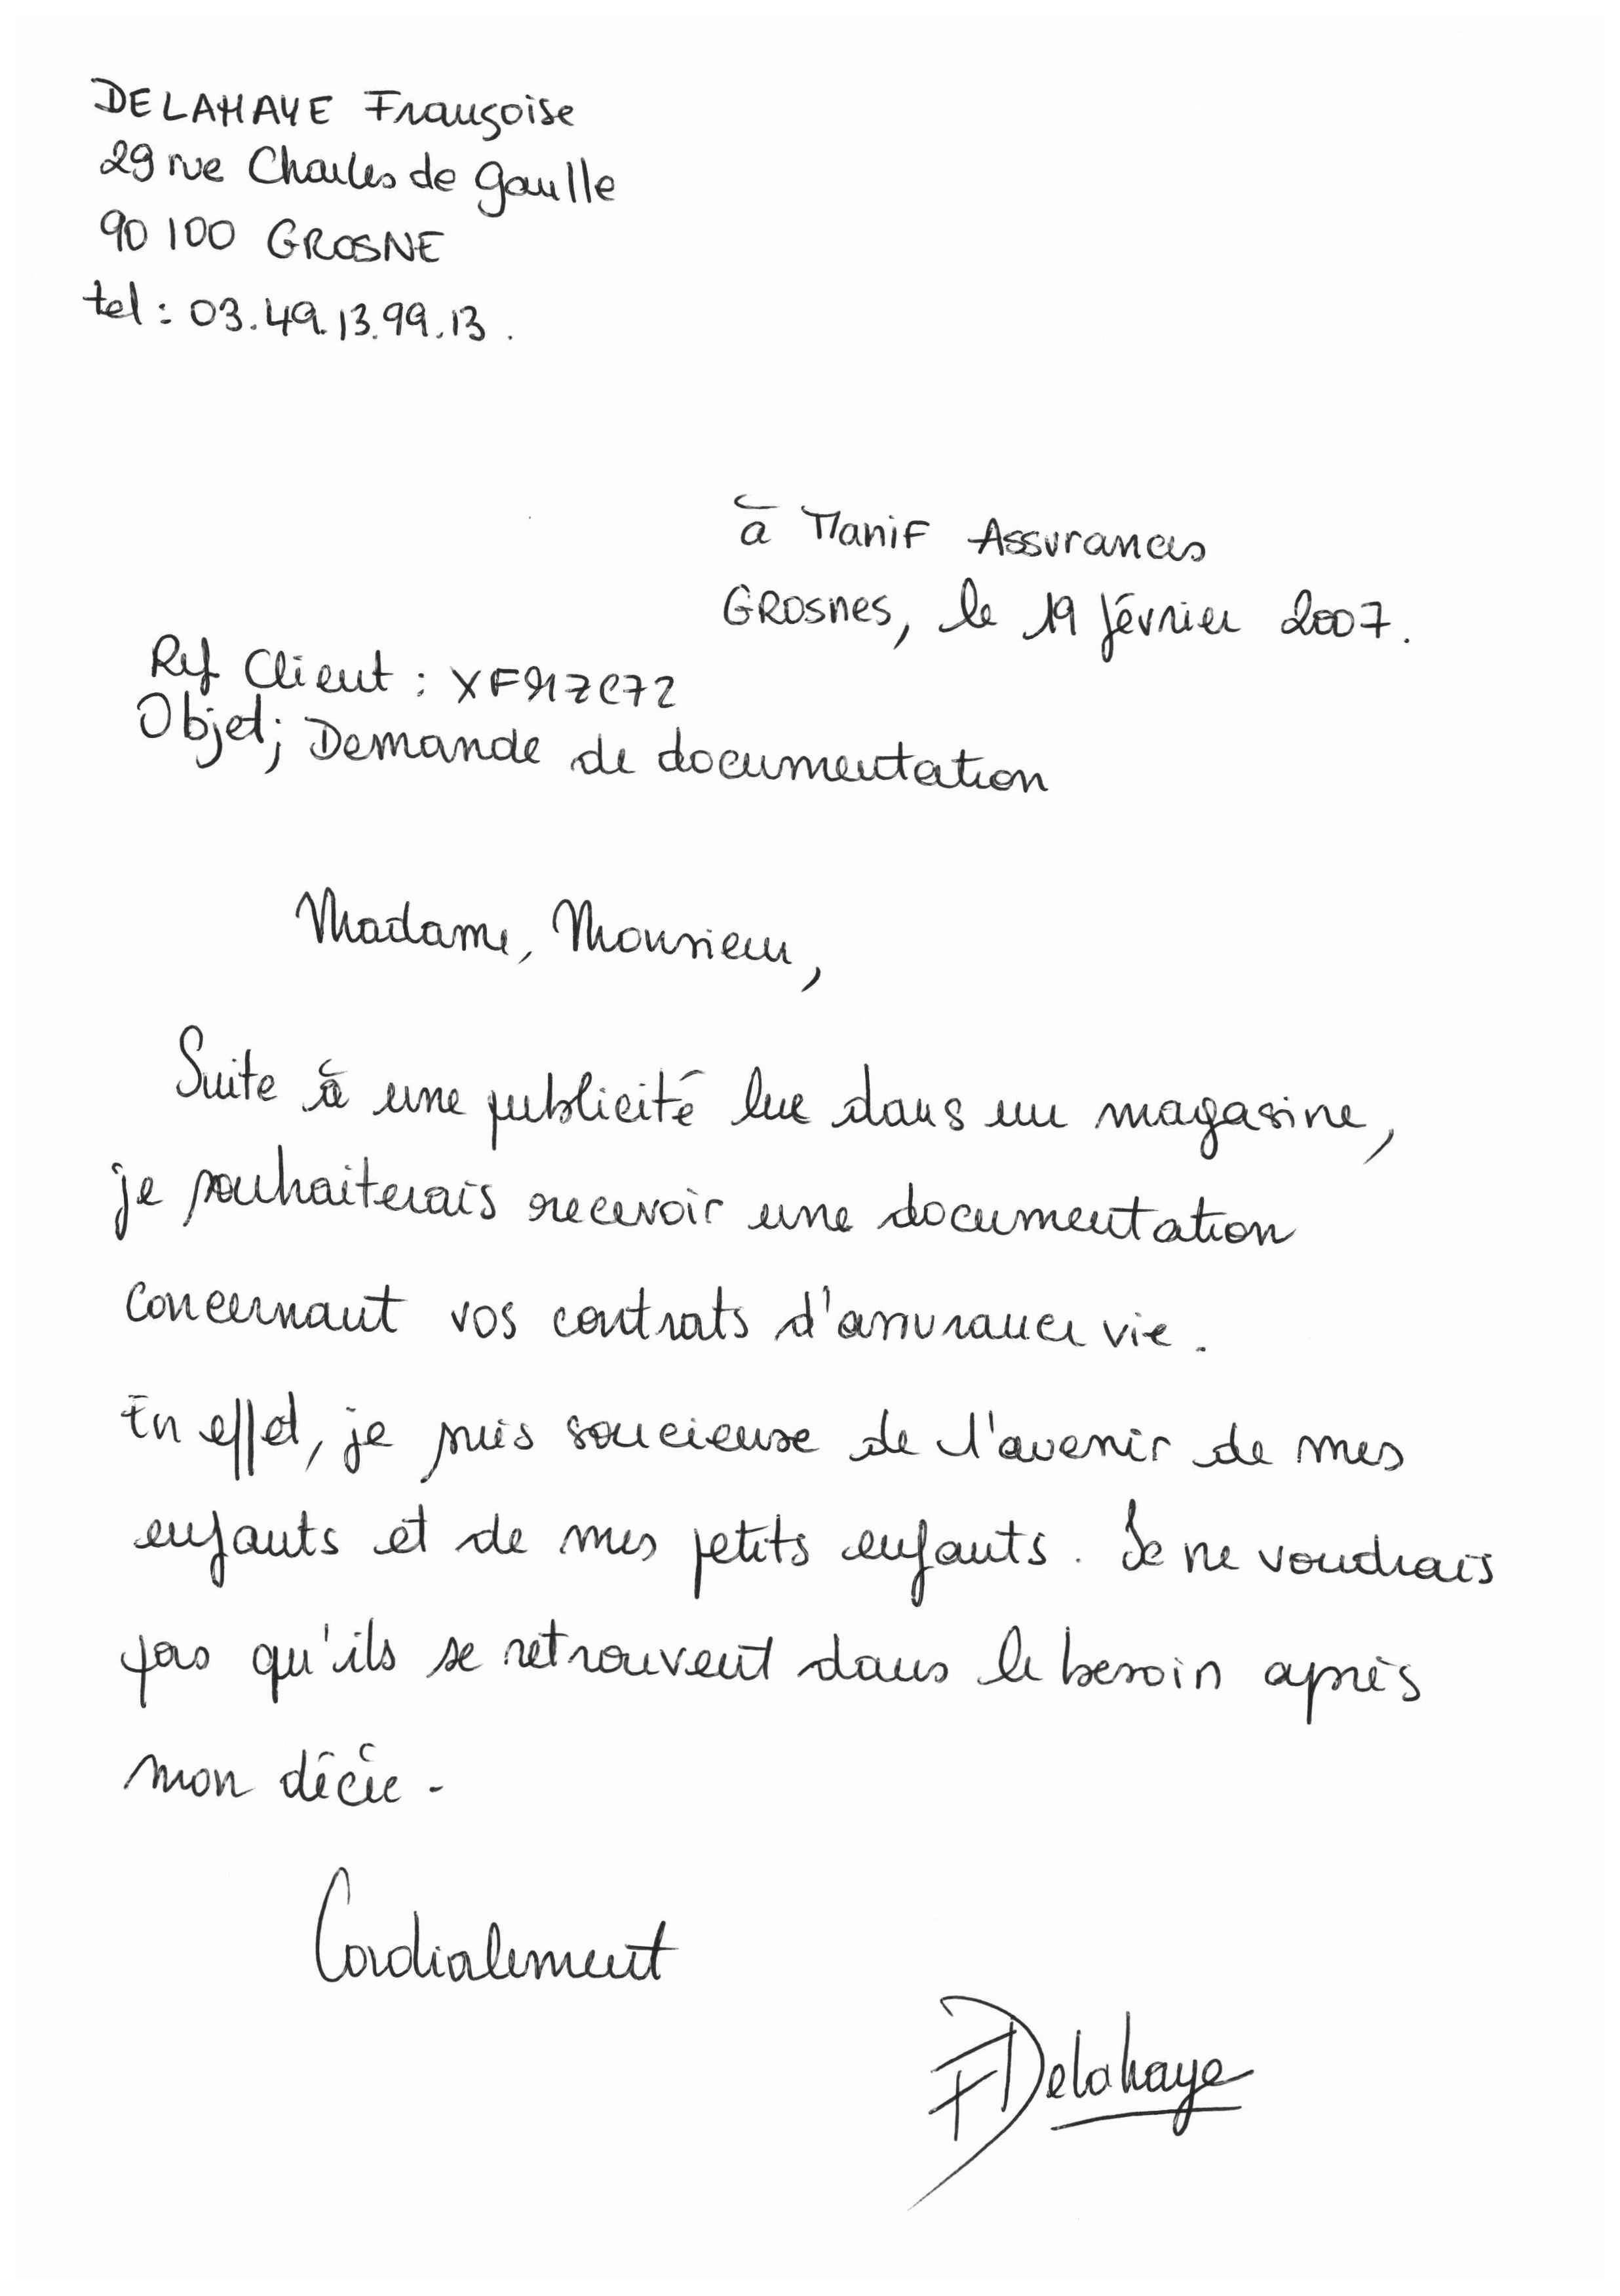 DELAHAYE Françoise
29 rue Charles de Gaulle
90 100 GROSNE
tel : 03.49.13.99.13.
à Manif Assurances
GROSNES, le 19 février 2007.
Ref Client :
Objet ; Demande de documentation
Madame, Monsieur,
Suite à une publicité lue dans un magasine,
je souhaiterais recevoir une documentation
concernant vos contrats d'assurance vie.
En effet, je suis soucieuse de l'avenir de mes
enfants et de mes petits enfants. Je ne voudrais
pas qu'ils se retrouvent dans le besoin après
mon décée.
Cordialement
F Delahaye